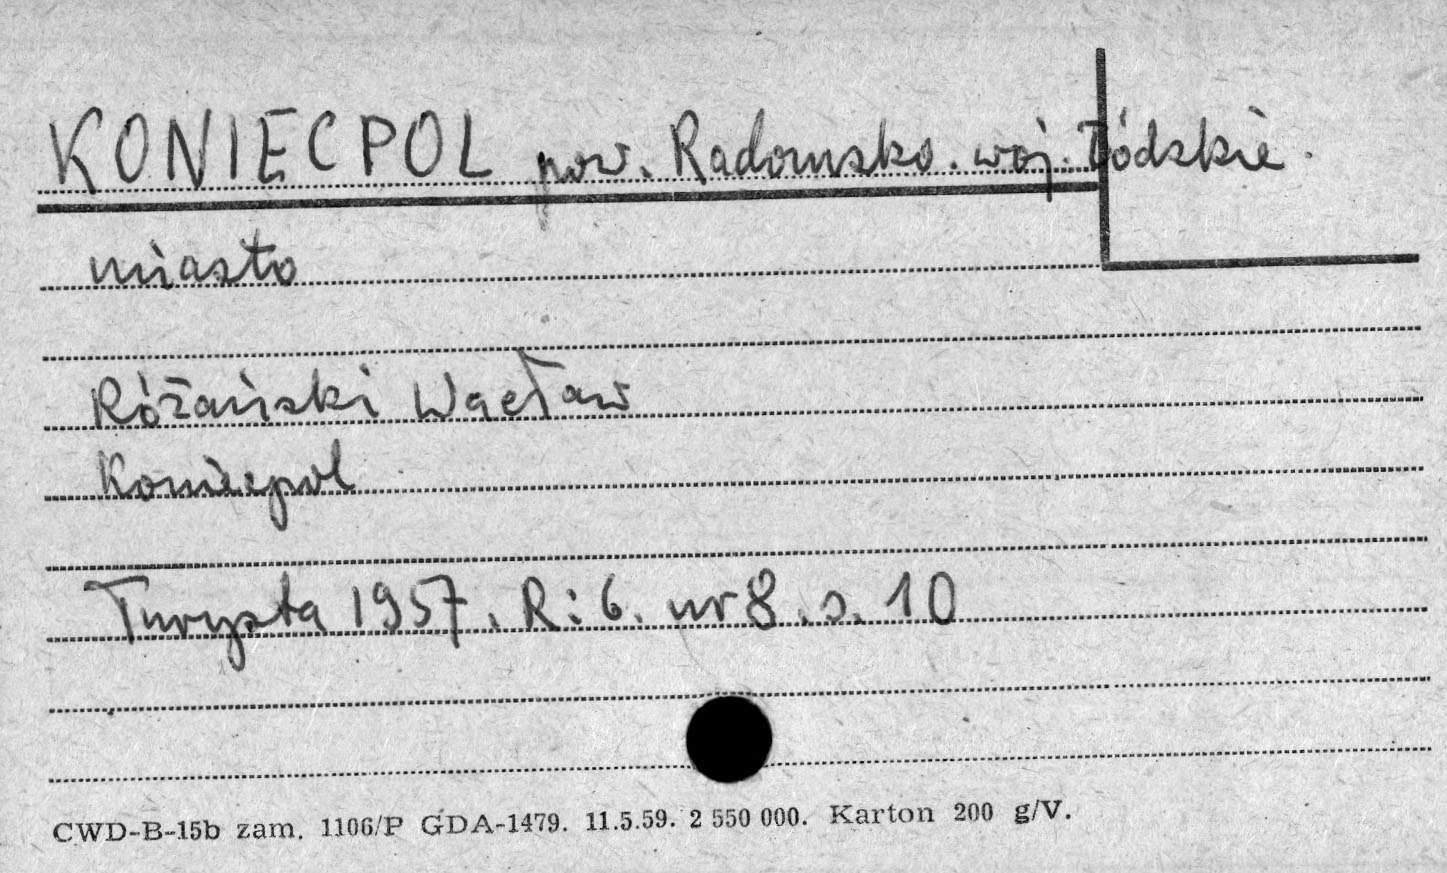 KONIECPOL pow. Radomsko. woj. Łódzkie.
miasto
Różański Wacław
Koniecpol
Turysta 1957. R: 6. nr 8. s. 10
CWD-B-15b zam. 1106/P GDA-1479. 11.5.59. 2 550 000. Karton 200 g/V.